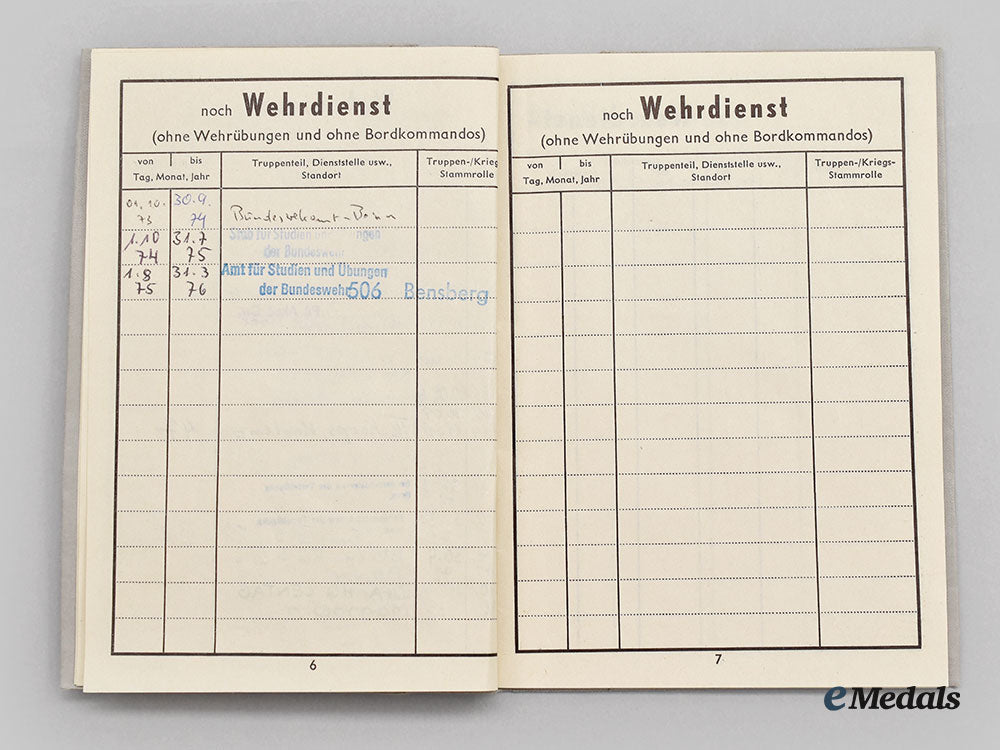 noch Wehrdienst
(ohne Wehrübungen und ohne Bordkommandos)
von bis
Tag, Monat, Jahr
Truppenteil, Dienststelle usw.,
Standort
Truppen-/Krieg
Stammrolle
01.10. 30.9.
73 74
1.10 31.7
74 75
Stab für Studien und ngen
der Bundeswehr
1.8 31.3
75 76
Amt für Studien und Übungen
der Bundeswehr 506 Bensberg
6
noch Wehrdienst
(ohne Wehrübungen und ohne Bordkommandos)
von bis
Tag, Monat, Jahr
Truppenteil, Dienststelle usw.,
Standort
Truppen-/Kriegs-
Stammrolle
7
eMedals